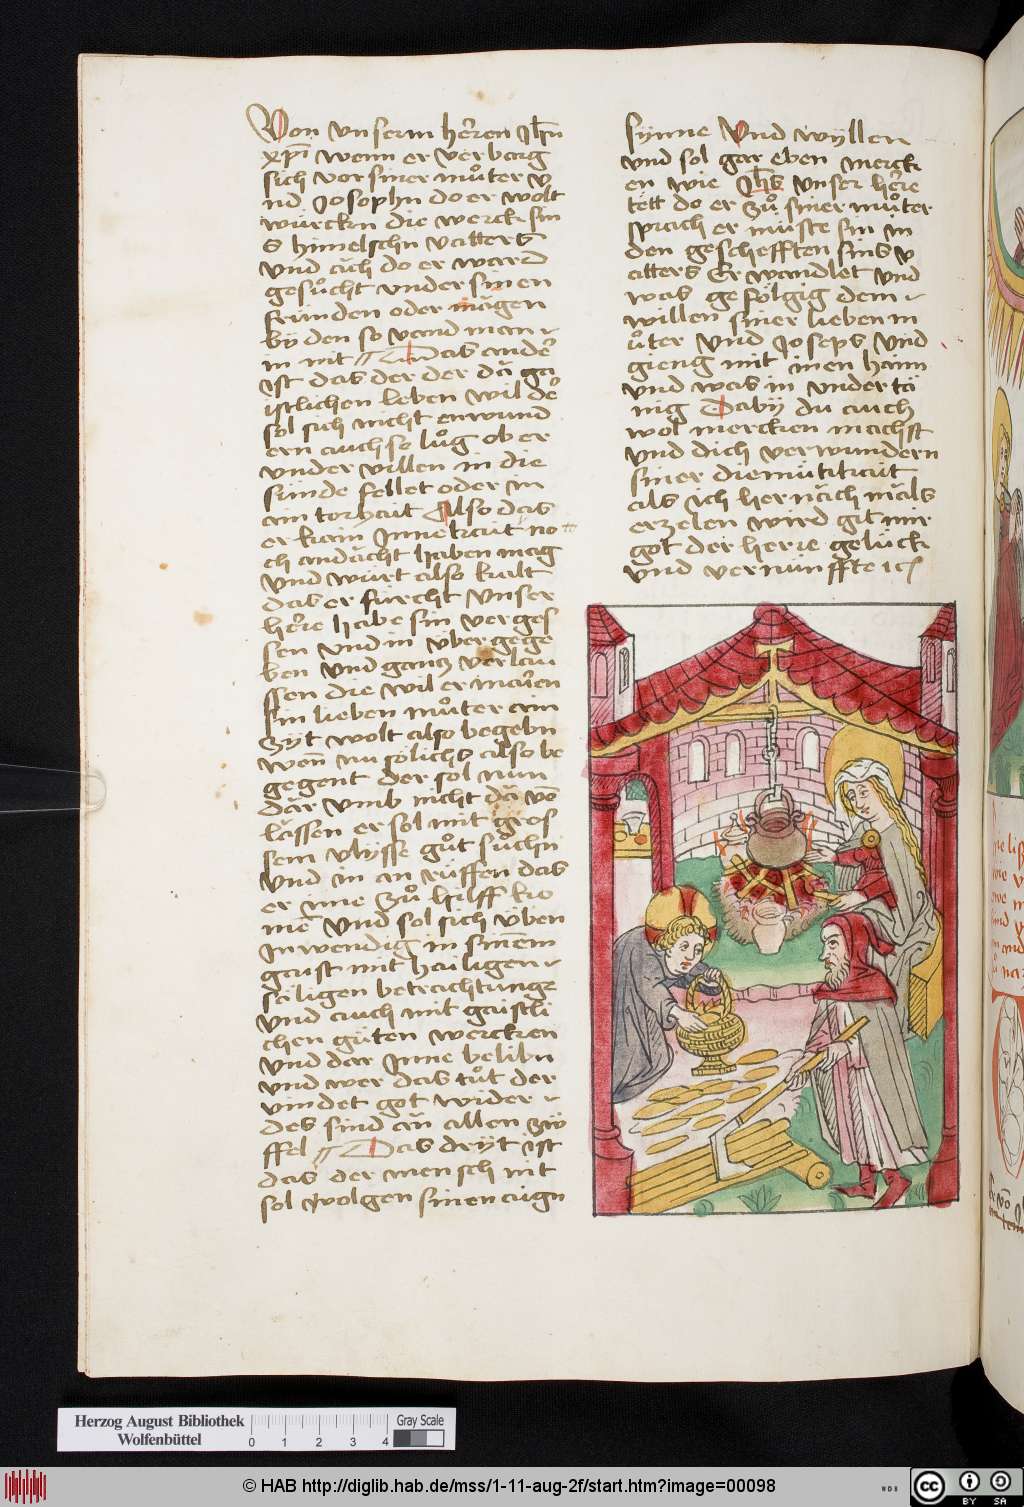 Von vnserm herren Jhu
xpi wenn er verbarg
sich vor siner můter v
nd Josophn do er wolt
würcken die werck sin
s himelschn vatters
vnd ăch do er ward
gesůcht vnder sinen
fründen oder mägen
by den so vand man
in nit Das ander
ist das der der da ga
istlichen leben wil der
sol sich nicht erwund
ern auch so lůg ob er
vnder villen in die
sünde fellet oder in
ain torhait Also das
er kain Jnnekait no
ch andächt haben mag
vnd würt also kalt
das er fürcht vnser
herre habe sin verges
sen vnd in übergege
ben vnd gantz verlau
ssen die wil er maren
sin lieben můter ain
zyt wolt also begebn
wen nu sölichs also be
gegent der sol nun
där vmb nicht dä vō
lässen er sol mit gros
sem vlysse gůt sůchn
vnd in an rüffen das
er ime zů hilff kō
me vnd sol sich üben
Jnwendig in sinem
gaist mit hailigen
säligen betrachtunge
vnd auch mit gaistli
chen gůten wercken
vnd dar Jnne belibn
vnd wer das tůt der
vindet got wider
des sind ăn allen zw
ffel Das dryt ist
das der mensch nit
sol volgen sinen aign
synne vnd wyllen
vnd sol gar eben merck
en wie Jhs vnser here
tett do er zů siner můter
sprach er müste sin in
den geschefften sins v
atters Er wandlet vnd
was gefölgig dem
willen siner lieben m
ůter vnd Joseps vnd
gieng mit inen haim
vnd was in vndertä
nig Daby du auch
wol mercken machst
vnd dich verwundern
siner diemütikait
als ich hernäch mäls
erzelen wird git mir
got der herre gelück
vnd vernünffte ich
Herzog August Bibliothek
Wolfenbüttel
0 1 2 3 4
Gray Scale
© HAB http://diglib.hab.de/mss/1-11-aug-2f/start.htm?image=00098
WDB
cc BY SA